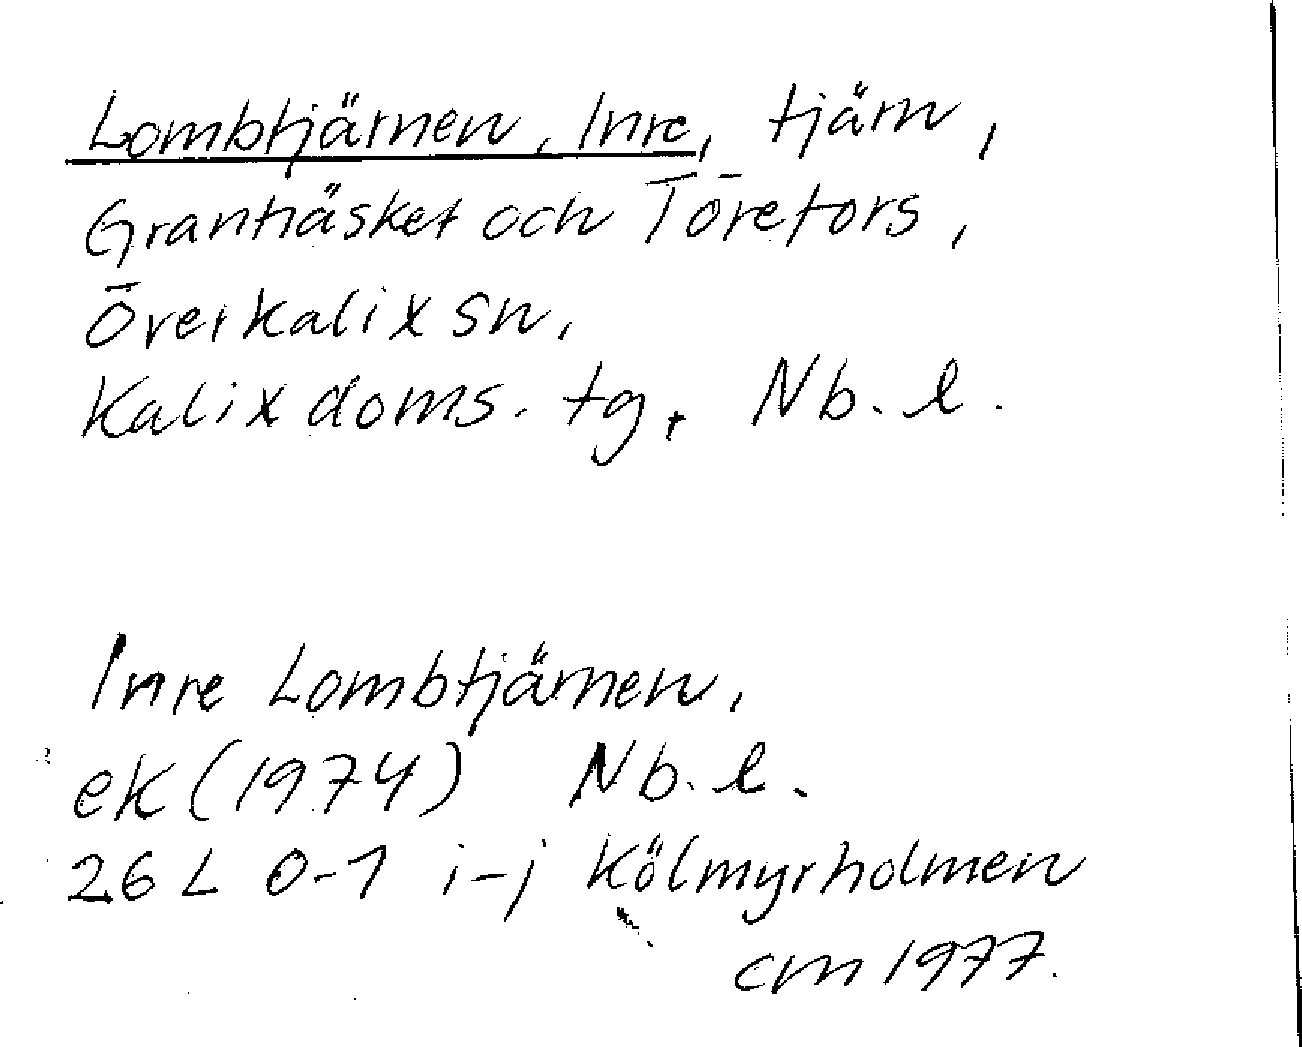 Lombtjärnen, Inre, tjärn,
Granträsket och Törefors,
Överkalix sn.
Kalix doms. tg. Nb. l.
Inre Lombtjärnen,
ek (1974) Nb. l.
26 L 0-1 i-j Kölmyrholmen
cm 1977.